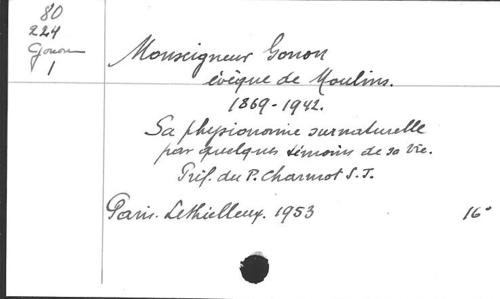 80
224
Gonon
1
Monseigneur Gonon
évêque de Moulins.
1869-1942.
Sa physionomie surnaturelle
par quelques témoins de sa vie.
Préf. du P. Charmot S.J.
Paris. Lethielleux. 1953 16°